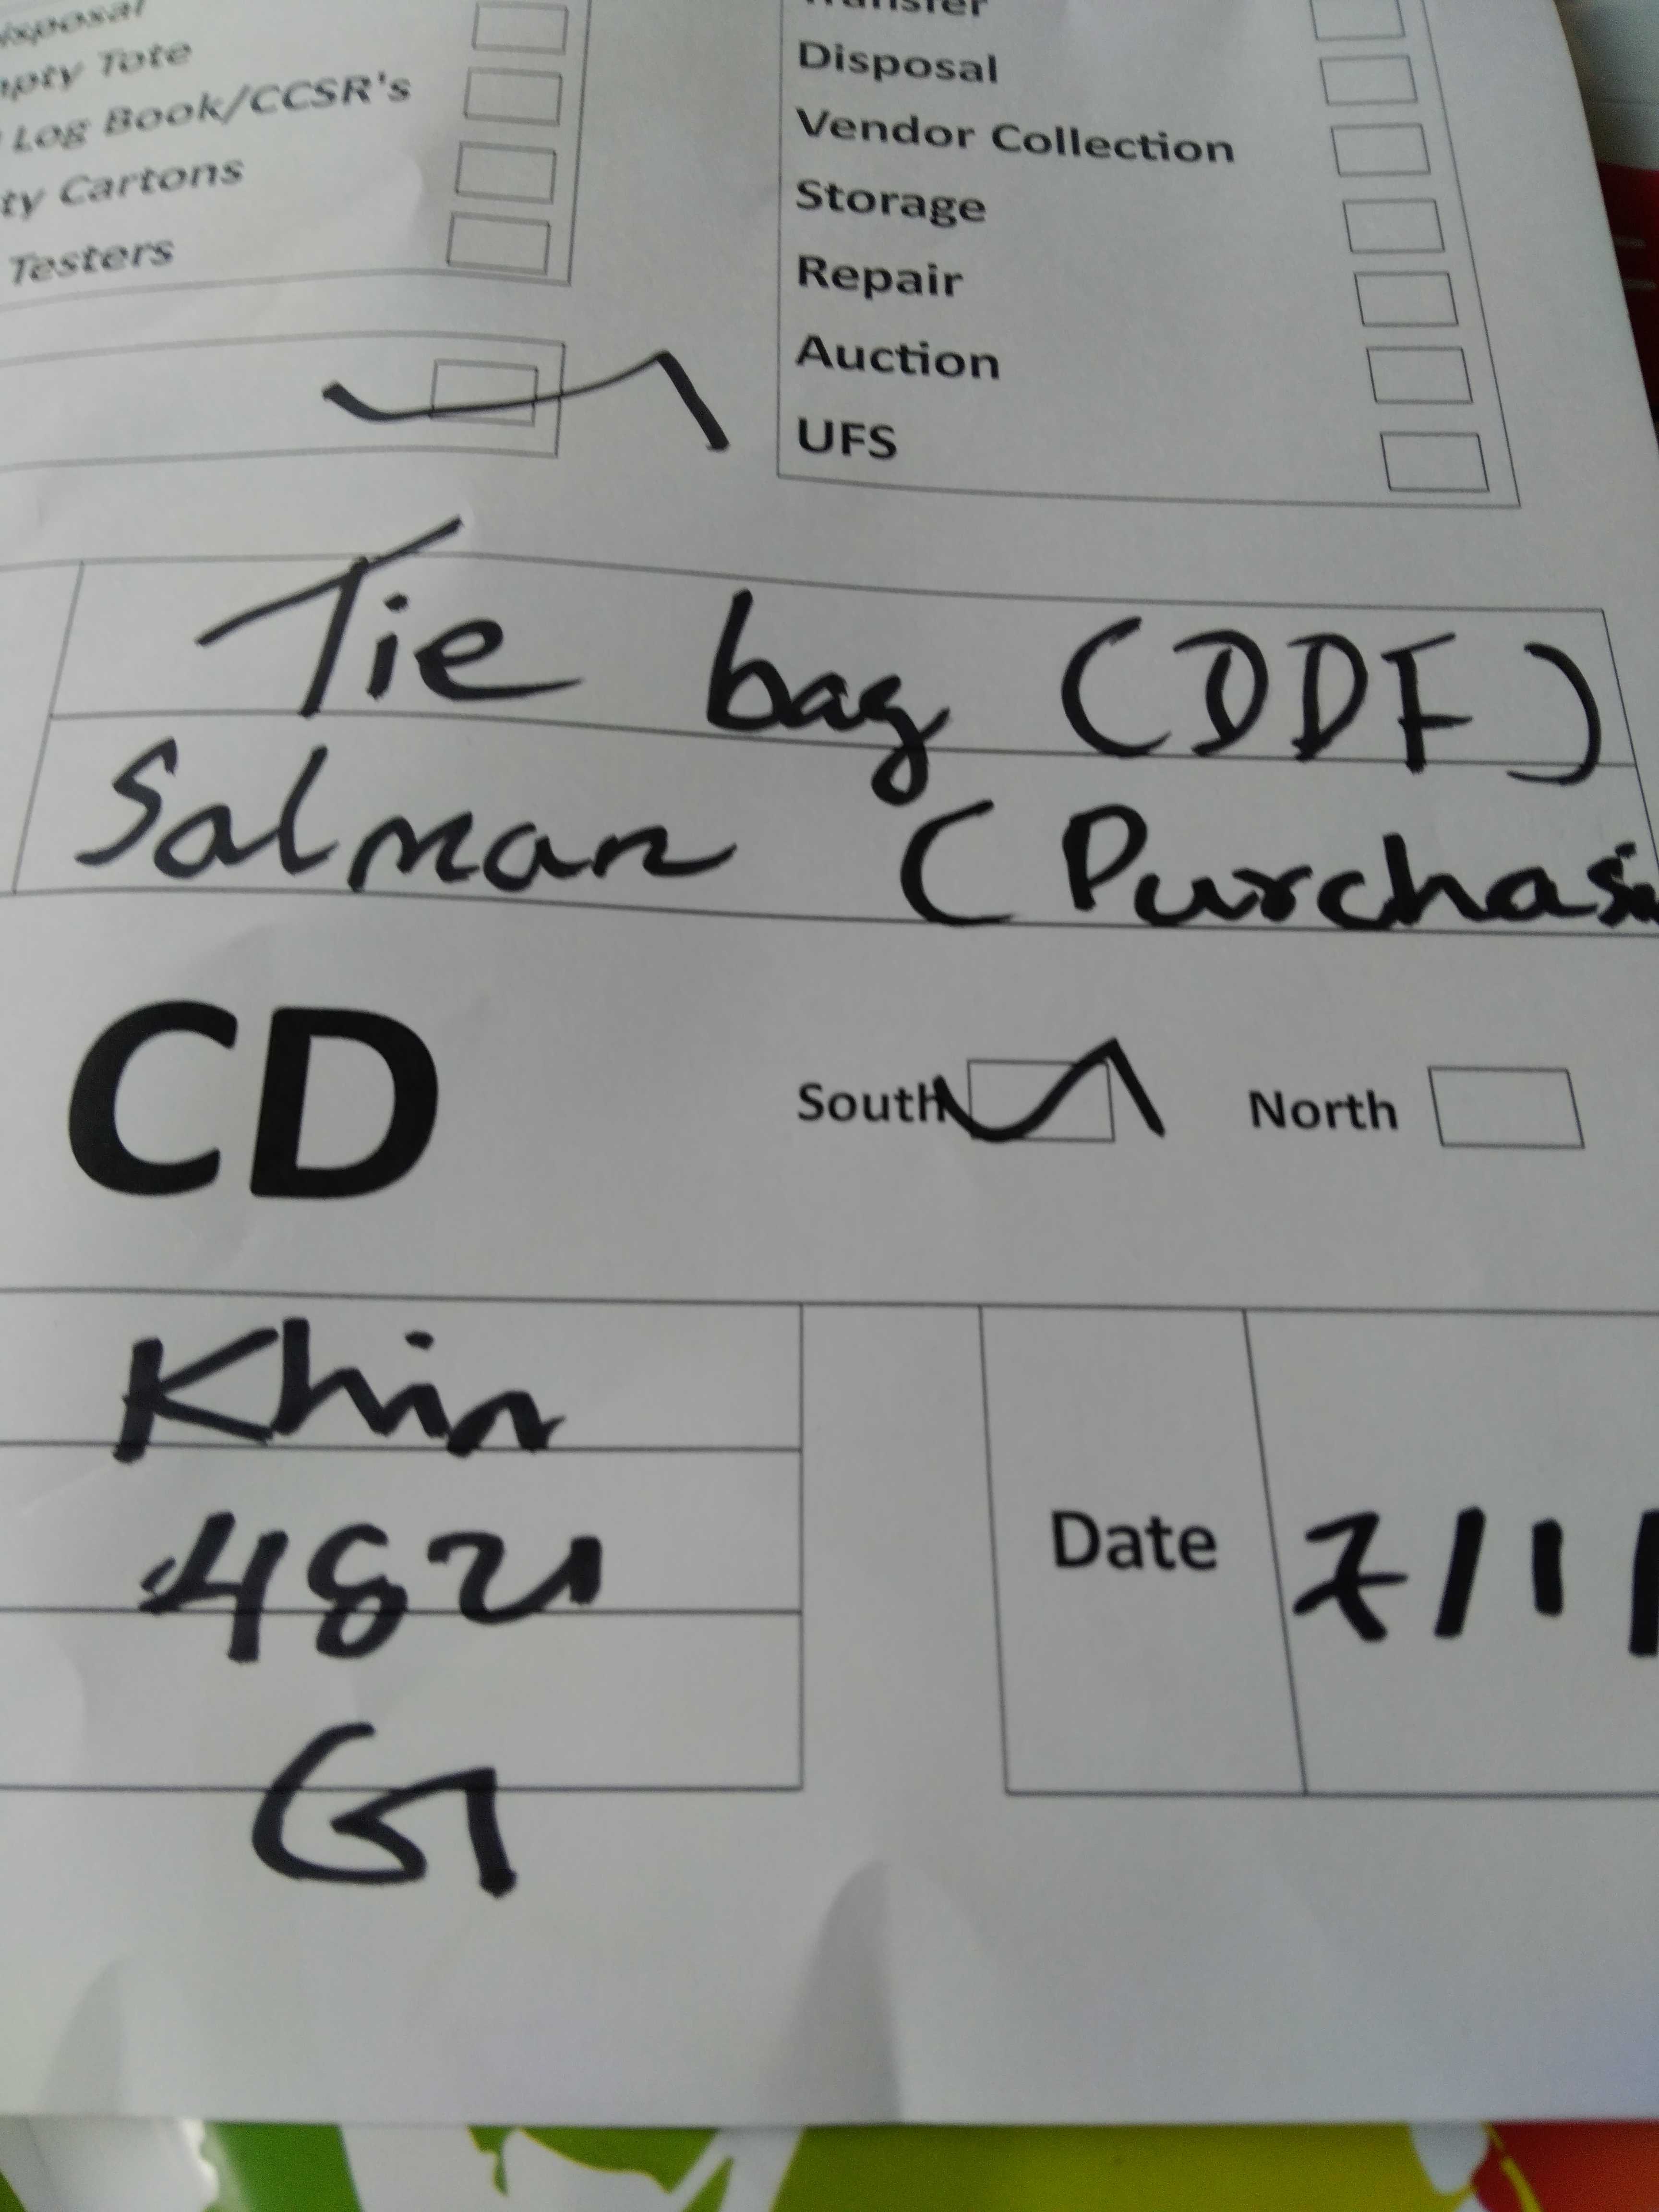 Disposal
Tote
Log Book/CCSR's
Cartons
Testers
Transfer
Disposal
Vendor Collection
Storage
Repair
Auction
UFS
Tie bag (DDF)
Salman (Purchasi
CD
South North
Khin
4821
Date 7/11